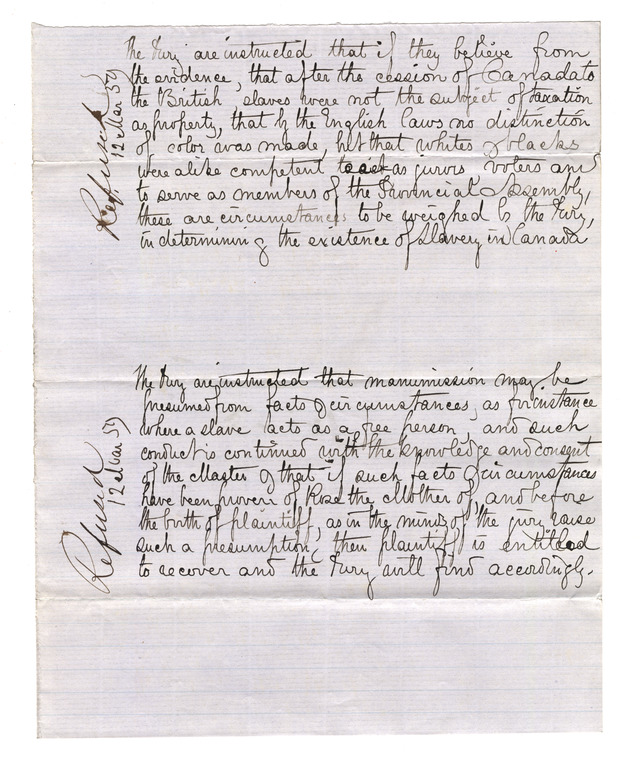 The Jury are instructed that if they believe from
the evidence, that after the cession of Canada to
the British, slaves were not the subject of taxation
as property, that by the English laws no distinction
of color was made, but that whites & blacks
were alike competent to act as jurors voters and
to serve as members of the Provincial Assembly,
these are circumstances to be weighed by the Jury,
in determining the existence of Slavery in Canada
Refused
12 Mar 59
The Jury are instructed that manumission may be
presumed from facts & circumstances, as for instance
where a slave acts as a free person, and such
conduct is continued with the knowledge and consent
of the Master & that if such facts & circumstances
have been proven of Rose the Mother of, and before
the birth of plaintiff, as in the minds of the jury raise
such a presumption, then plaintiff is entitled
to recover and the Jury will find accordingly.
Refused
12 Mar 59